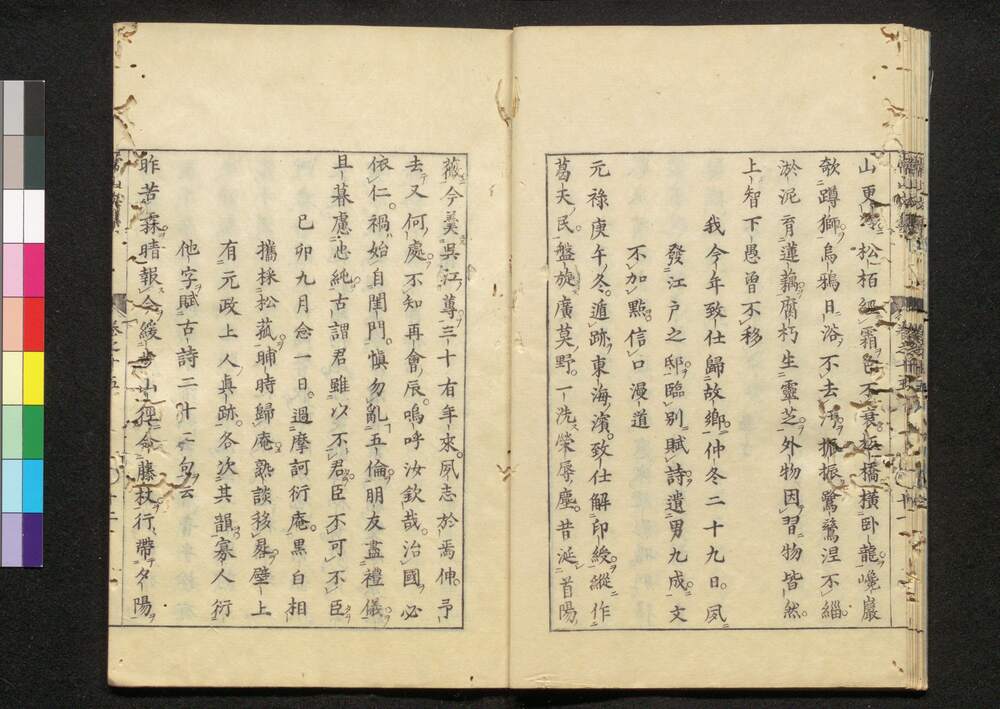 山更松柏經霜色不衰板橋橫臥龍巉巖
欹蹲獅烏鴉日浴不去汚振振鷺鷥涅不緇
淤泥育蓮藕腐朽生靈芝外物因習物皆然
上智下愚曾不移
我今年致仕歸故鄉仲冬二十九日夙
發江戸之邸臨別賦詩遺男九成文
不加點信口漫道
元祿庚午冬遁跡東海濱致仕解印綬縱作
葛天民盤旋廣莫野一洗榮辱塵昔涎首陽
薇今羨吳江蓴三十有年來夙志於焉伸予
去又何處不知再會辰嗚呼汝欽哉治國必
依仁禍始自閨門愼勿亂五倫朋友盡禮儀
旦暮慮忠純古謂君雖以不君臣不可不臣
己卯九月念一日過摩訶衍庵黒白相
攜採松菰晡時歸庵熟談移晷壁上
有元政上人眞跡各次其韻寡人衍
他字賦古詩二十二句云
昨苦霖晴報今緩步山徑命藤杖行帶夕陽